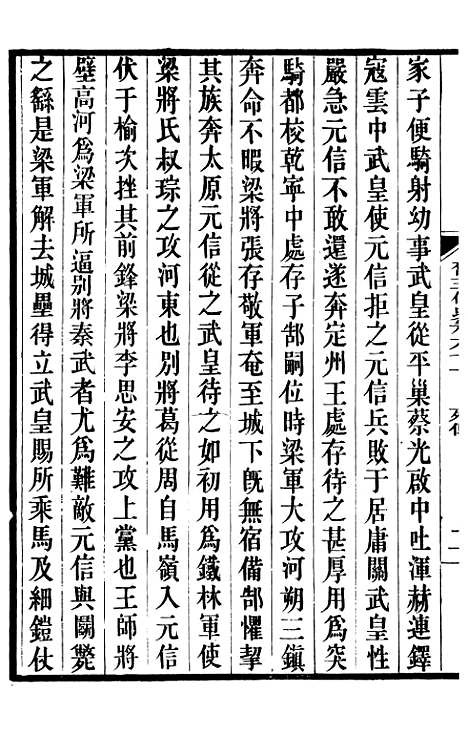 家子便騎射幼事武皇從平巢蔡光啟中吐渾赫連鐸
寇雲中武皇使元信拒之元信兵敗于居庸關武皇性
嚴急元信不敢還遂奔定州王處存待之甚厚用爲突
騎都校乾寧中處存子郜嗣位時梁軍大攻河朔三鎮
奔命不暇梁將張存敬軍奄至城下旣無宿備郜懼挈
其族奔太原元信從之武皇待之如初用爲鐵林軍使
梁將氏叔琮之攻河東也别將葛從周自馬嶺入元信
伏于榆次挫其前鋒梁將李思安之攻上黨也王師將
壁高河爲梁軍所逼别將秦武者尤爲難敵元信與鬬斃
之繇是梁軍解去城壘得立武皇賜所乘馬及細鎧仗